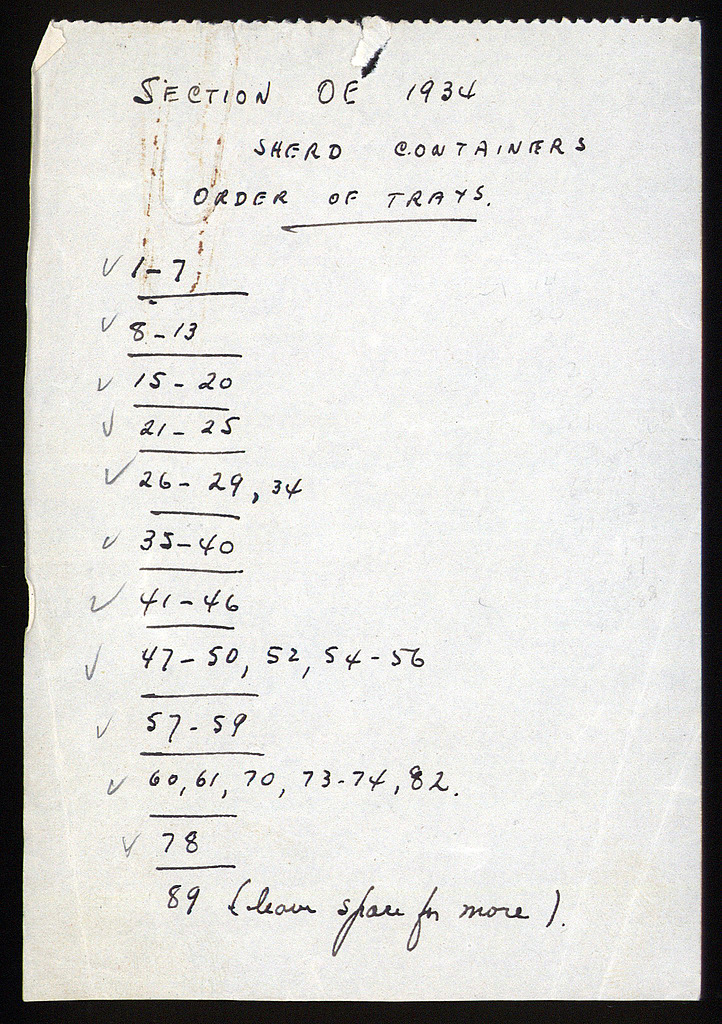 SECTION OE 1934
SHERD CONTAINERS
ORDER OF TRAYS.
✓ 1-7
✓ 8-13
✓ 15-20
✓ 21-25
✓ 26-29, 34
✓ 35-40
✓ 41-46
✓ 47-50, 52, 54-56
✓ 57-59
✓ 60, 61, 70, 73-74, 82.
✓ 78
89 (leave space for more).